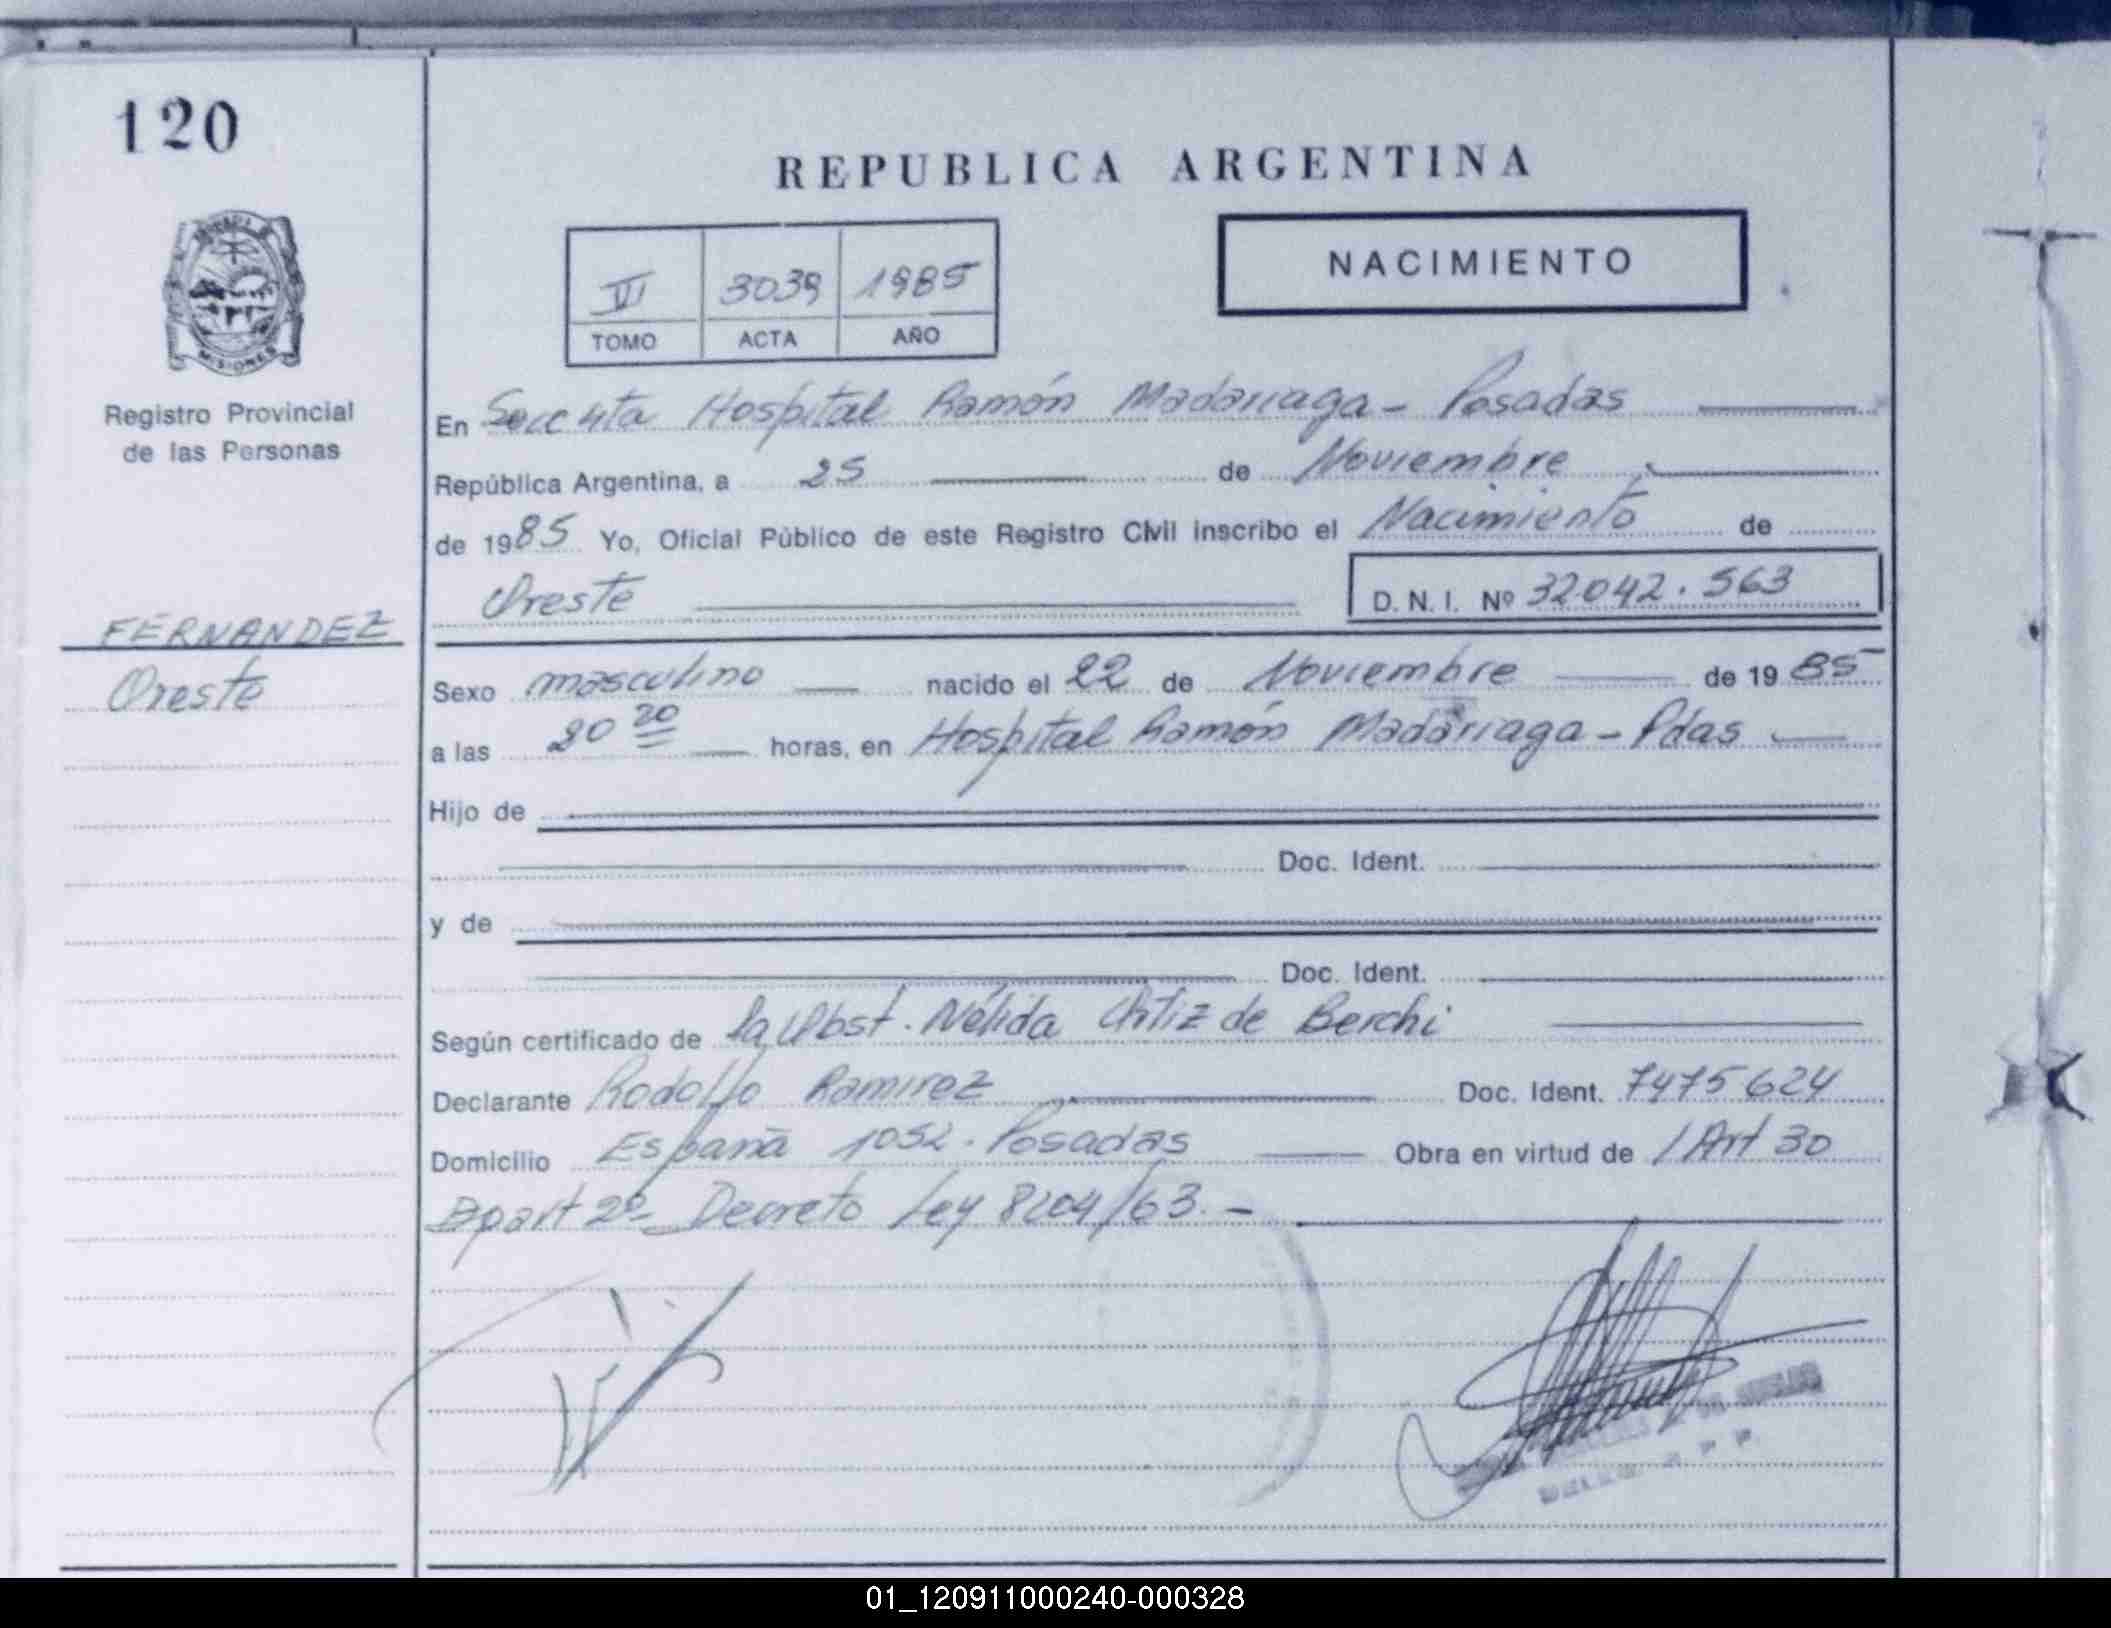 120
REPUBLICA ARGENTINA
NACIMIENTO
3039 1985
TOMO ACTA AÑO
MISIONES
Registro Provincial
de las Personas
FERNANDEZ
Oreste
En Secc 4ta Hospital Ramón Madariaga - Posadas
República Argentina, a 25 de Noviembre
de 1985 Yo, Oficial Público de este Registro Civil inscribo el Nacimiento de
Oreste D. N. I. Nº 32042.563
Sexo masculino nacido el 22 de Noviembre de 1985
a las 20 20 horas, en Hospital Ramón Madariaga - Pdas
Hijo de
Doc. Ident.
y de
Doc. Ident.
Según certificado de la Obst. Nélida Ortiz de Berchi
Declarante Rodolfo Ramirez Doc. Ident. 7475624
Domicilio España 1052. Posadas Obra en virtud de / Art 30
apart 2º Decreto Ley 8204/63.-
01_120911000240-000328